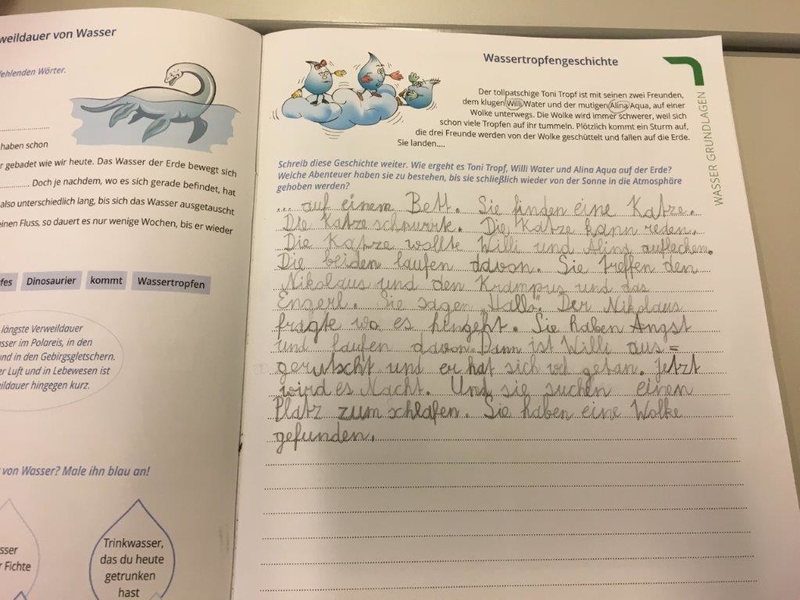 weildauer von Wasser
ehlenden Wörter.
haben schon
r gebadet wie wir heute. Das Wasser der Erde bewegt sich
Doch je nachdem, wo es sich gerade befindet, hat
also unterschiedlich lang, bis sich das Wasser ausgetauscht
einen Fluss, so dauert es nur wenige Wochen, bis er wieder
fes Dinosaurier kommt Wassertropfen
längste Verweildauer
sser im Polareis, in den
und in den Gebirgsgletschern.
er Luft und in Lebewesen ist
ildauer hingegen kurz.
von Wasser? Male ihn blau an!
sser
r Fichte
Trinkwasser,
das du heute
getrunken
hast
Wassertropfengeschichte
Der tollpatschige Toni Tropf ist mit seinen zwei Freunden,
dem klugen Willi Water und der mutigen Alina Aqua, auf einer
Wolke unterwegs. Die Wolke wird immer schwerer, weil sich
schon viele Tropfen auf ihr tummeln. Plötzlich kommt ein Sturm auf,
die drei Freunde werden von der Wolke geschüttelt und fallen auf die Erde.
Sie landen....
Schreib diese Geschichte weiter. Wie ergeht es Toni Tropf, Willi Water und Alina Aqua auf der Erde?
Welche Abenteuer haben sie zu bestehen, bis sie schließlich wieder von der Sonne in die Atmosphäre
gehoben werden?
... auf einem Bett. Sie finden eine Katze.
Die Katze schnurrte. Die Katze kann reden.
Die Katze wollte Willi und Alina auflecken.
Die beiden laufen davon. Sie treffen den
Nikolaus und den Krampus und das
Engerl. Sie sagen „Hallo". Der Nikolaus
fragte wo es hingeht. Sie haben Angst
und laufen davon. Dann ist Willi aus=
gerutscht und er hat sich weh getan. Jetzt
wird es Nacht. Und sie suchen einen
Platz zum schlafen. Sie haben eine Wolke
gefunden.
WASSER GRUNDLAGEN